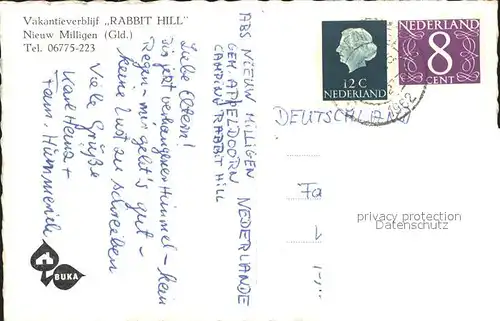 Vakantieverblijf „RABBIT HILL"
Nieuw Milligen (Gld.)
Tel. 06775-223
Liebe Eltern!
Bis jetzt verhangener Himmel – kein
Regen mir geht's gut –
keine Lust zu schreiben
Viele Grüße
Karl Heinz +
Fam. Hümmerich
ABS NIEUW MILLIGEN
GEM. APPELDOORN NEDERLANDE
CAMPING RABBIT HILL
BUKA
12 C
NEDERLAND
NEDERLAND
8
CENT
1962
DEUTSCHLAND
Fa
privacy protection
Datenschutz